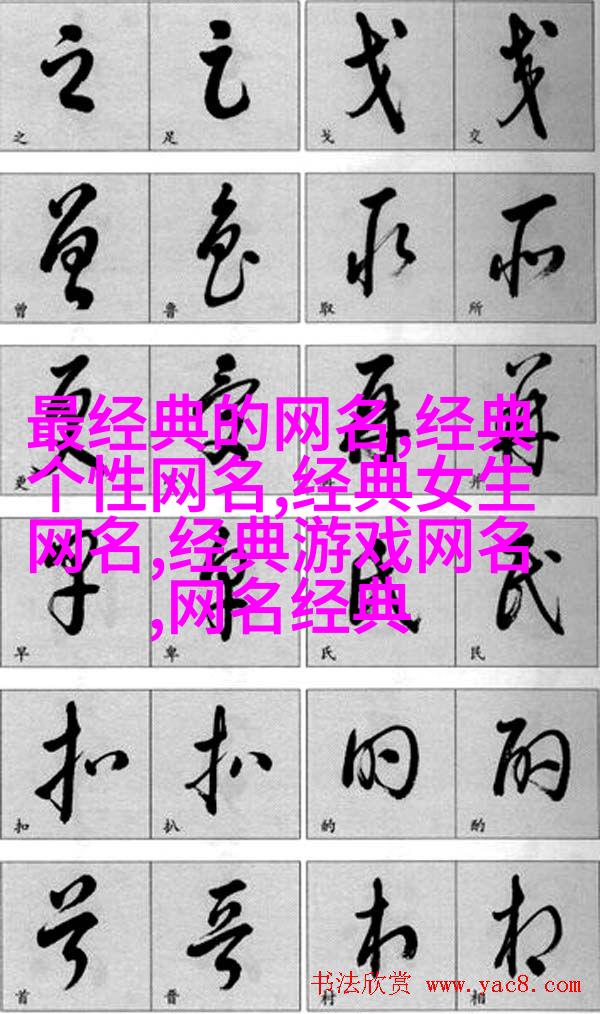 之 足 戈 交
曾 鲁 取 所
更 并
最经典的网名,经典
个性网名,经典女生
网名,经典游戏网名
,网名经典
早 卑 氏 民
扣 扒 的 酌
首 晋 村 相
书法欣赏 www.yac8.com